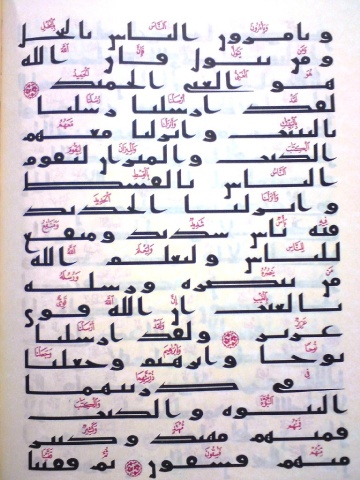 ويامرون الناس بالبخل
ومن يتول فان الله
هو الغني الحميد
لقد ارسلنا رسلنا
بالبينت وانزلنا معهم
الكتب والميزان ليقوم
الناس بالقسط
وانزلنا الحديد
فيه باس شديد ومنفع
للناس وليعلم الله
من ينصره ورسله
بالغيب ان الله قوي
عزيز ولقد ارسلنا
نوحا وابرهيم وجعلنا
في ذريتهما
النبوة والكتب
فمنهم مهتد وكثير
منهم فسقون ثم قفينا